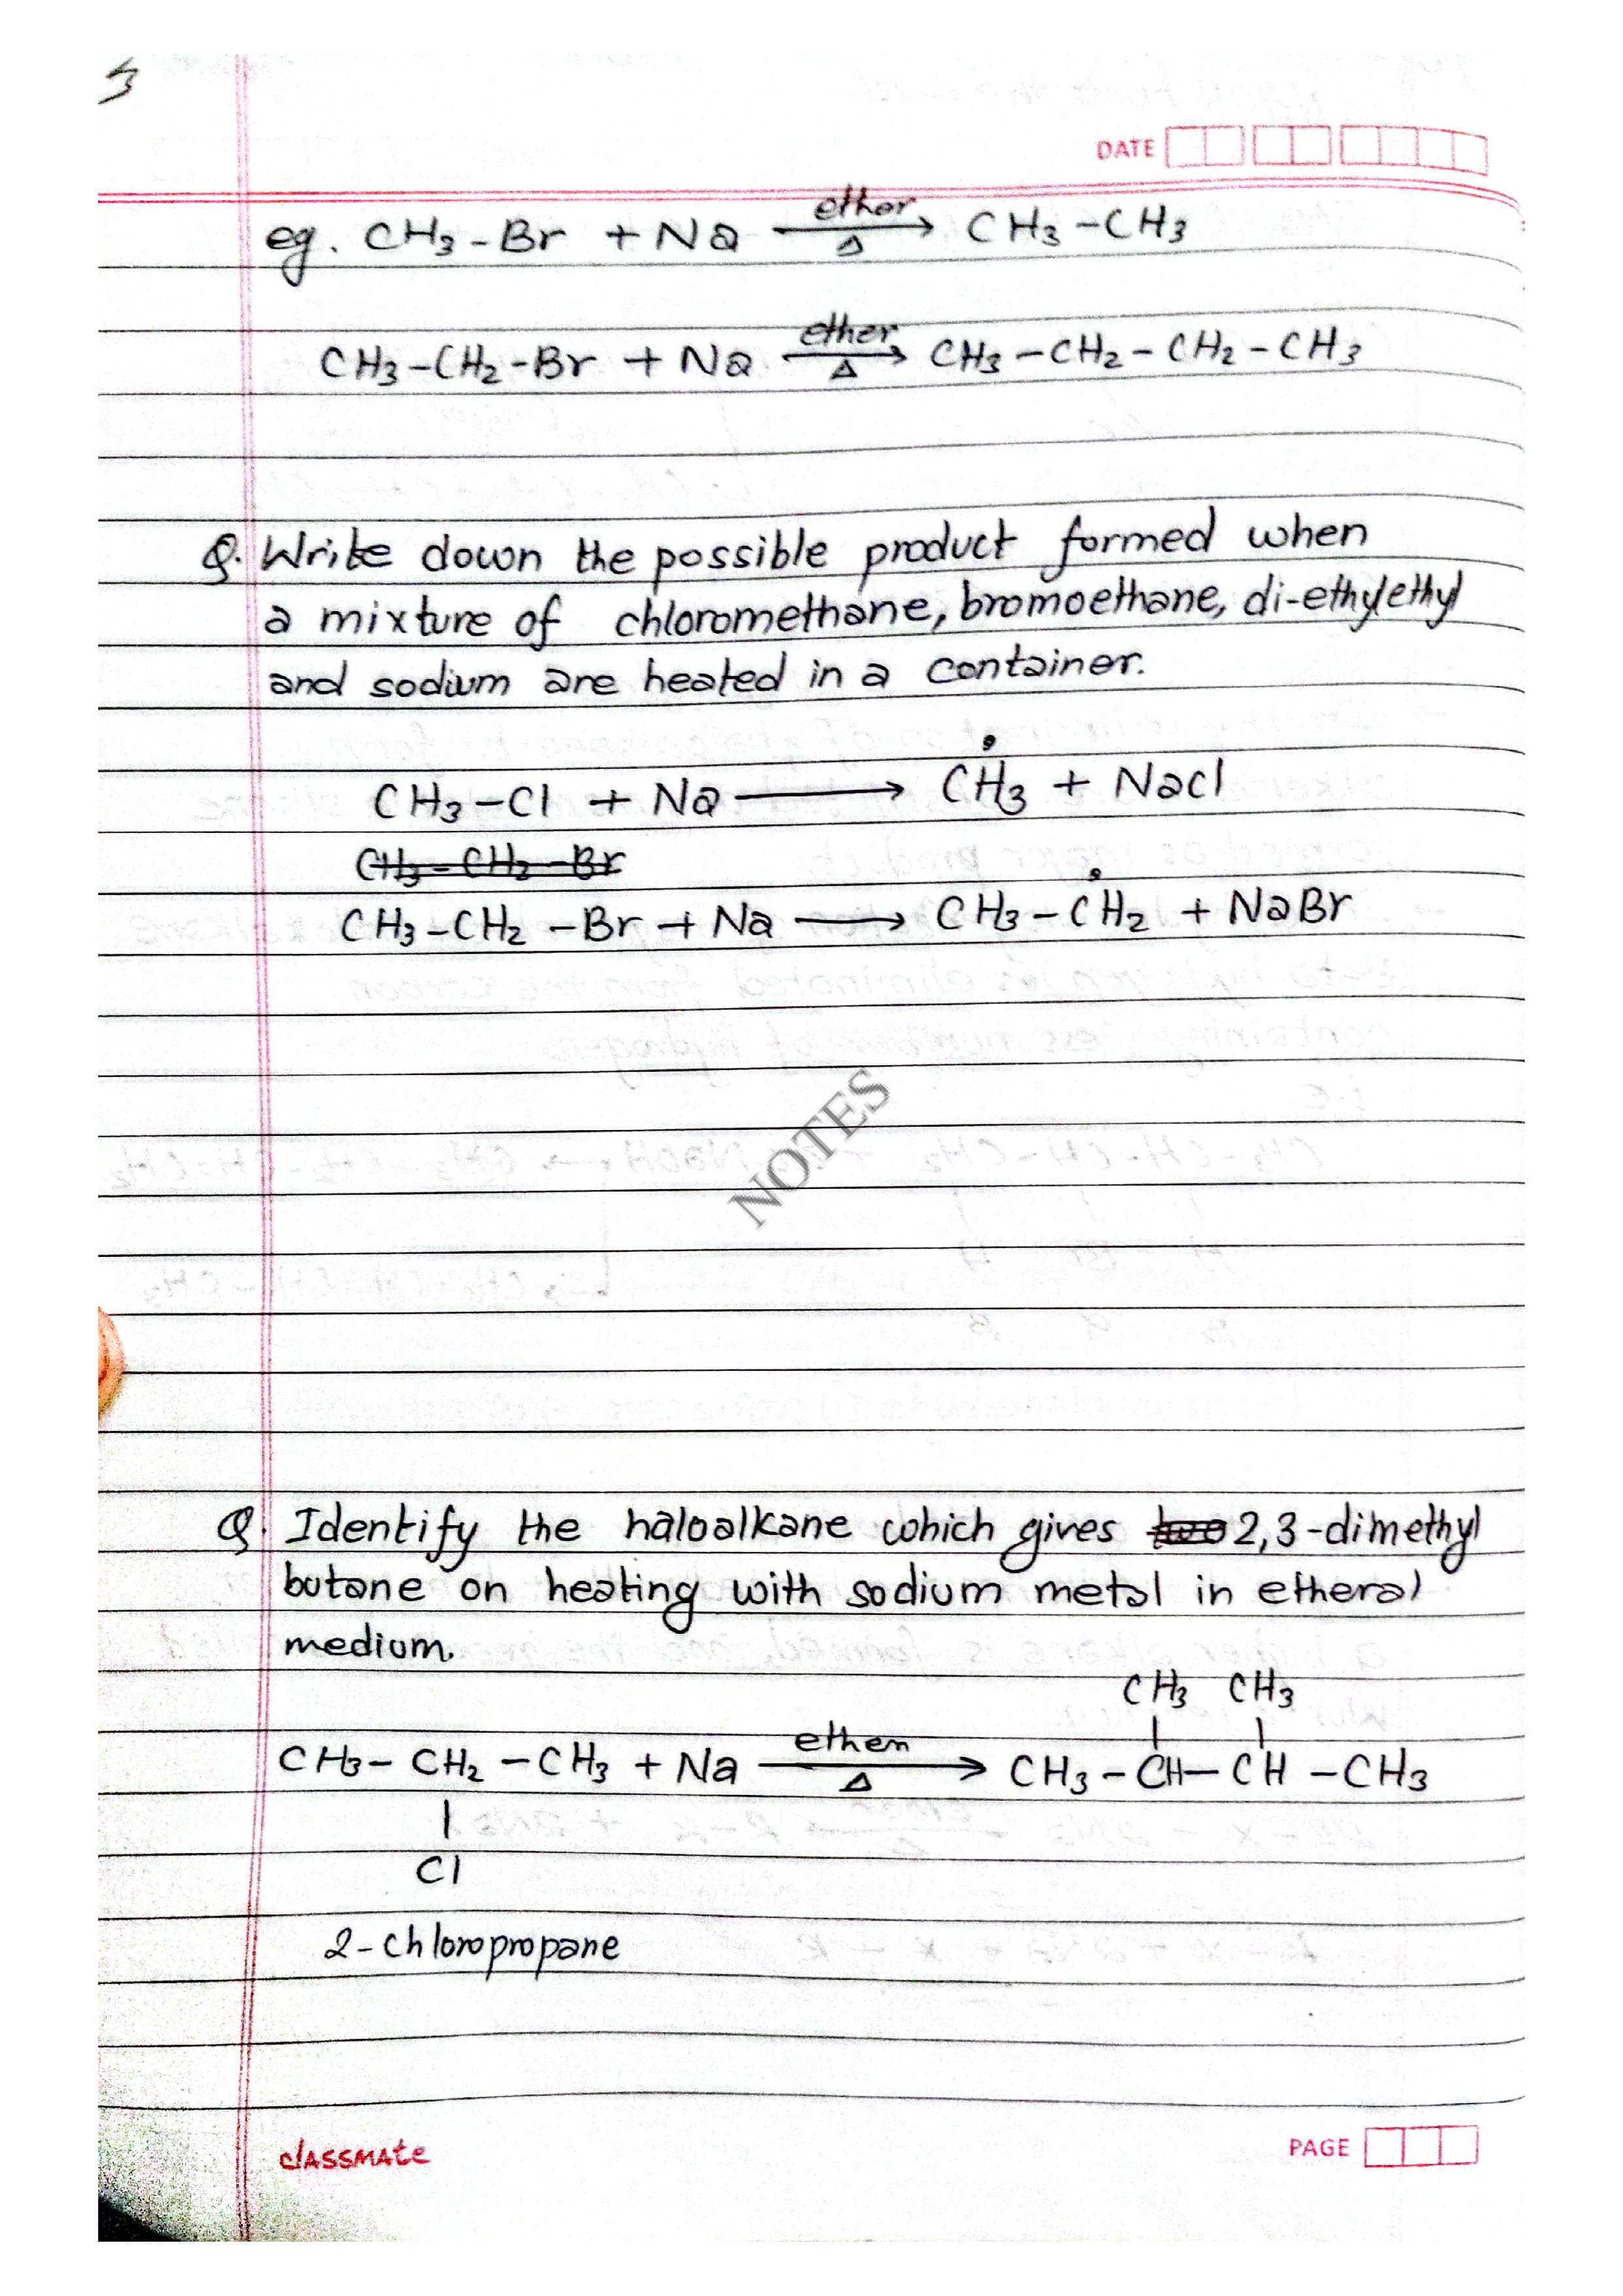 5
DATE
eg. CH3-Br + Na ether Δ → CH3-CH3
CH3-CH2-Br + Na ether Δ → CH3-CH2-CH2-CH3
Q. Write down the possible product formed when
a mixture of chloromethane, bromoethane, di-ethylethyl
and sodium are heated in a container.
CH3-Cl + Na → ĊH3 + Nacl
CH3-CH2-Br
CH3-CH2-Br + Na → CH3-ĊH2 + NaBr
NOTES
Q. Identify the haloalkane which gives 2,3-dimethyl
butane on heating with sodium metal in etheral
medium.
CH3 CH3
CH3-CH2-CH3 + Na ether Δ → CH3-CH-CH-CH3
Cl
2-chloropropane
classmate
PAGE